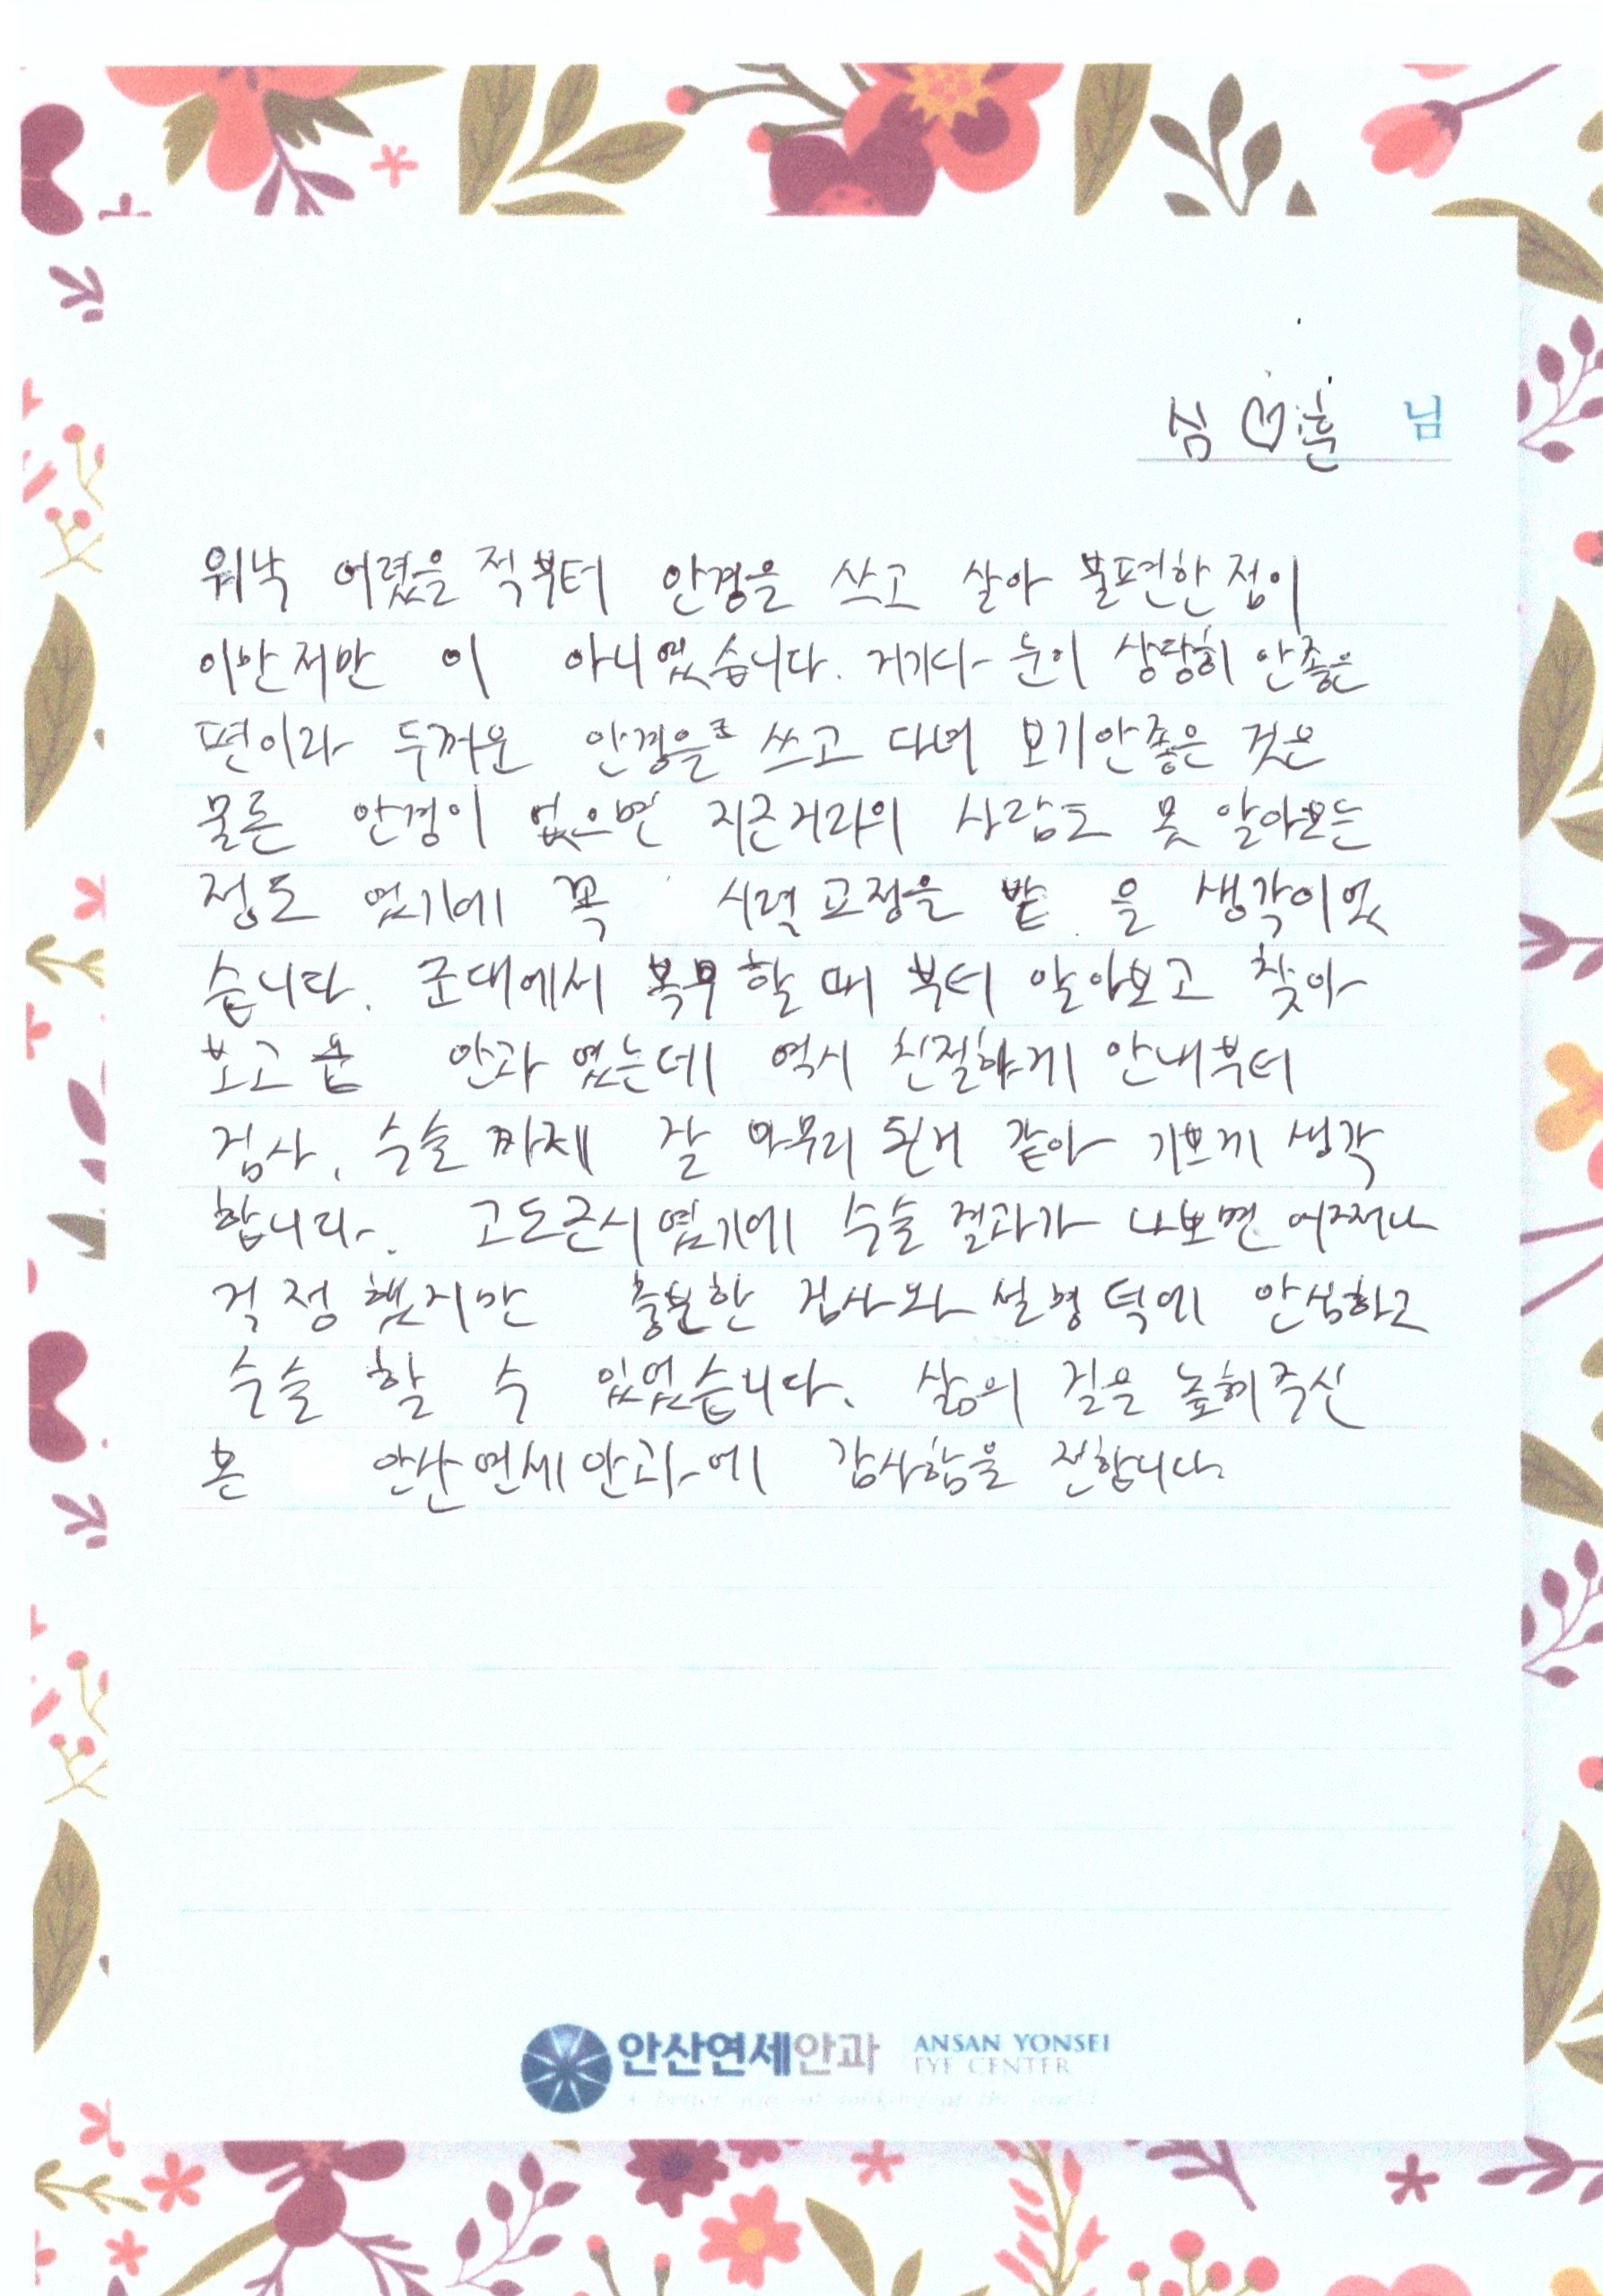 심♡훈 님
워낙 어렸을 적부터 안경을 쓰고 살아 불편한 점이
이만저만 이 아니었습니다. 거기다 눈이 상당히 안좋은
편이라 두꺼운 안경을 쓰고 다녀 보기안좋은 것은
물론 안경이 없으면 지근거리의 사람도 못 알아보는
정도 였기에 꼭 시력교정을 받 을 생각이었
습니다. 군대에서 복무할 때 부터 알아보고 찾아
보고 온 안과 였는데 역시 친절하게 안내부터
검사, 수술까지 잘 마무리 된거 같아 기쁘게 생각
합니다. 고도근시였기에 수술 결과가 나쁘면 어쩌나
걱정했지만 충분한 검사와 설명 덕에 안심하고
수술 할 수 있었습니다. 삶의 질을 높혀주신
본 안산연세안과에 감사함을 전합니다.
안산연세안과 ANSAN YONSEI
EYE CENTER